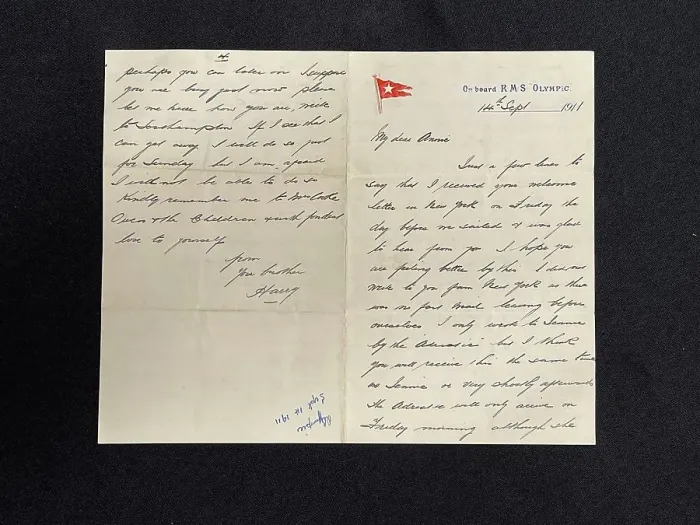 On board R.M.S. "OLYMPIC".
14th Sept 1911
My dear Annie
Just a few lines to
say that I received your welcome
letter in New York on Friday the
day before we sailed & was glad
to hear from you I hope you
are feeling better by this I did not
write to you from New York as there
was no fast mail leaving before
ourselves I only wrote to Jennie
by the Adriatic but I think
you will receive this the same time
as Jennie or very shortly afterwards
the Adriatic will only arrive on
Friday morning although she
4
perhaps you can later on I suppose
you are busy just now please
let me know how you are, write
to Southampton If I see that I
can get away I will do so just
for Sunday but I am afraid
I will not be able to do so
Kindly remember me to
Owen & the Children with fondest
love to yourself
from
Your brother
Harry
Olympic
Sept 14 1911